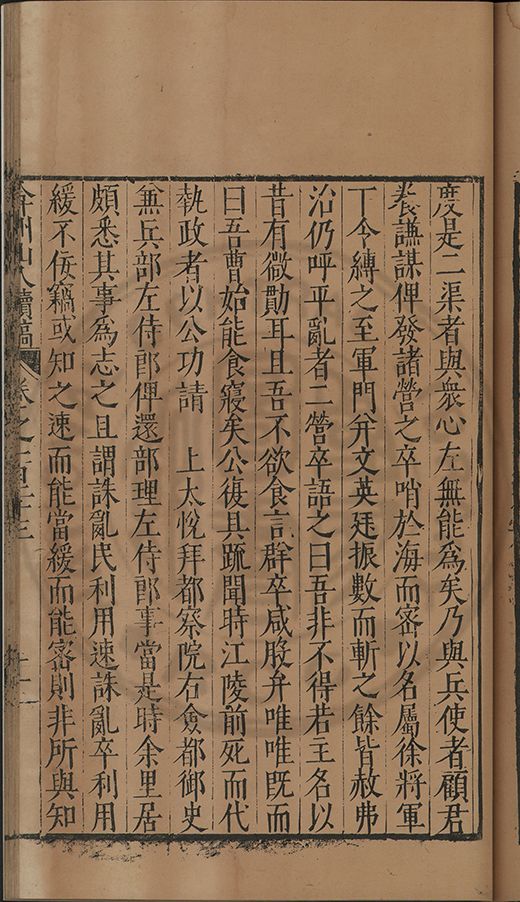 度是二渠者與衆心左無能爲矣乃與兵使者顧君
養謙謀俾發諸營之卒哨於海而密以名屬徐將軍
丁令縛之至軍門幷文英廷振數而斬之餘皆赦弗
治仍呼平亂者二營卒語之曰吾非不得若主名以
昔有微勳耳且吾不欲食言群卒咸股弁唯唯旣而
曰吾曹始能食寢矣公復具疏聞時江陵前死而代
執政者以公功請 上大悅拜都察院右僉都御史
兼兵部左侍郎俾還部理左侍郎事當是時余里居
頗悉其事爲志之且謂誅亂民利用速誅亂卒利用
緩不佞竊或知之速而能當緩而能密則非所與知
弇州山人續稿 卷之一百三十三 十二